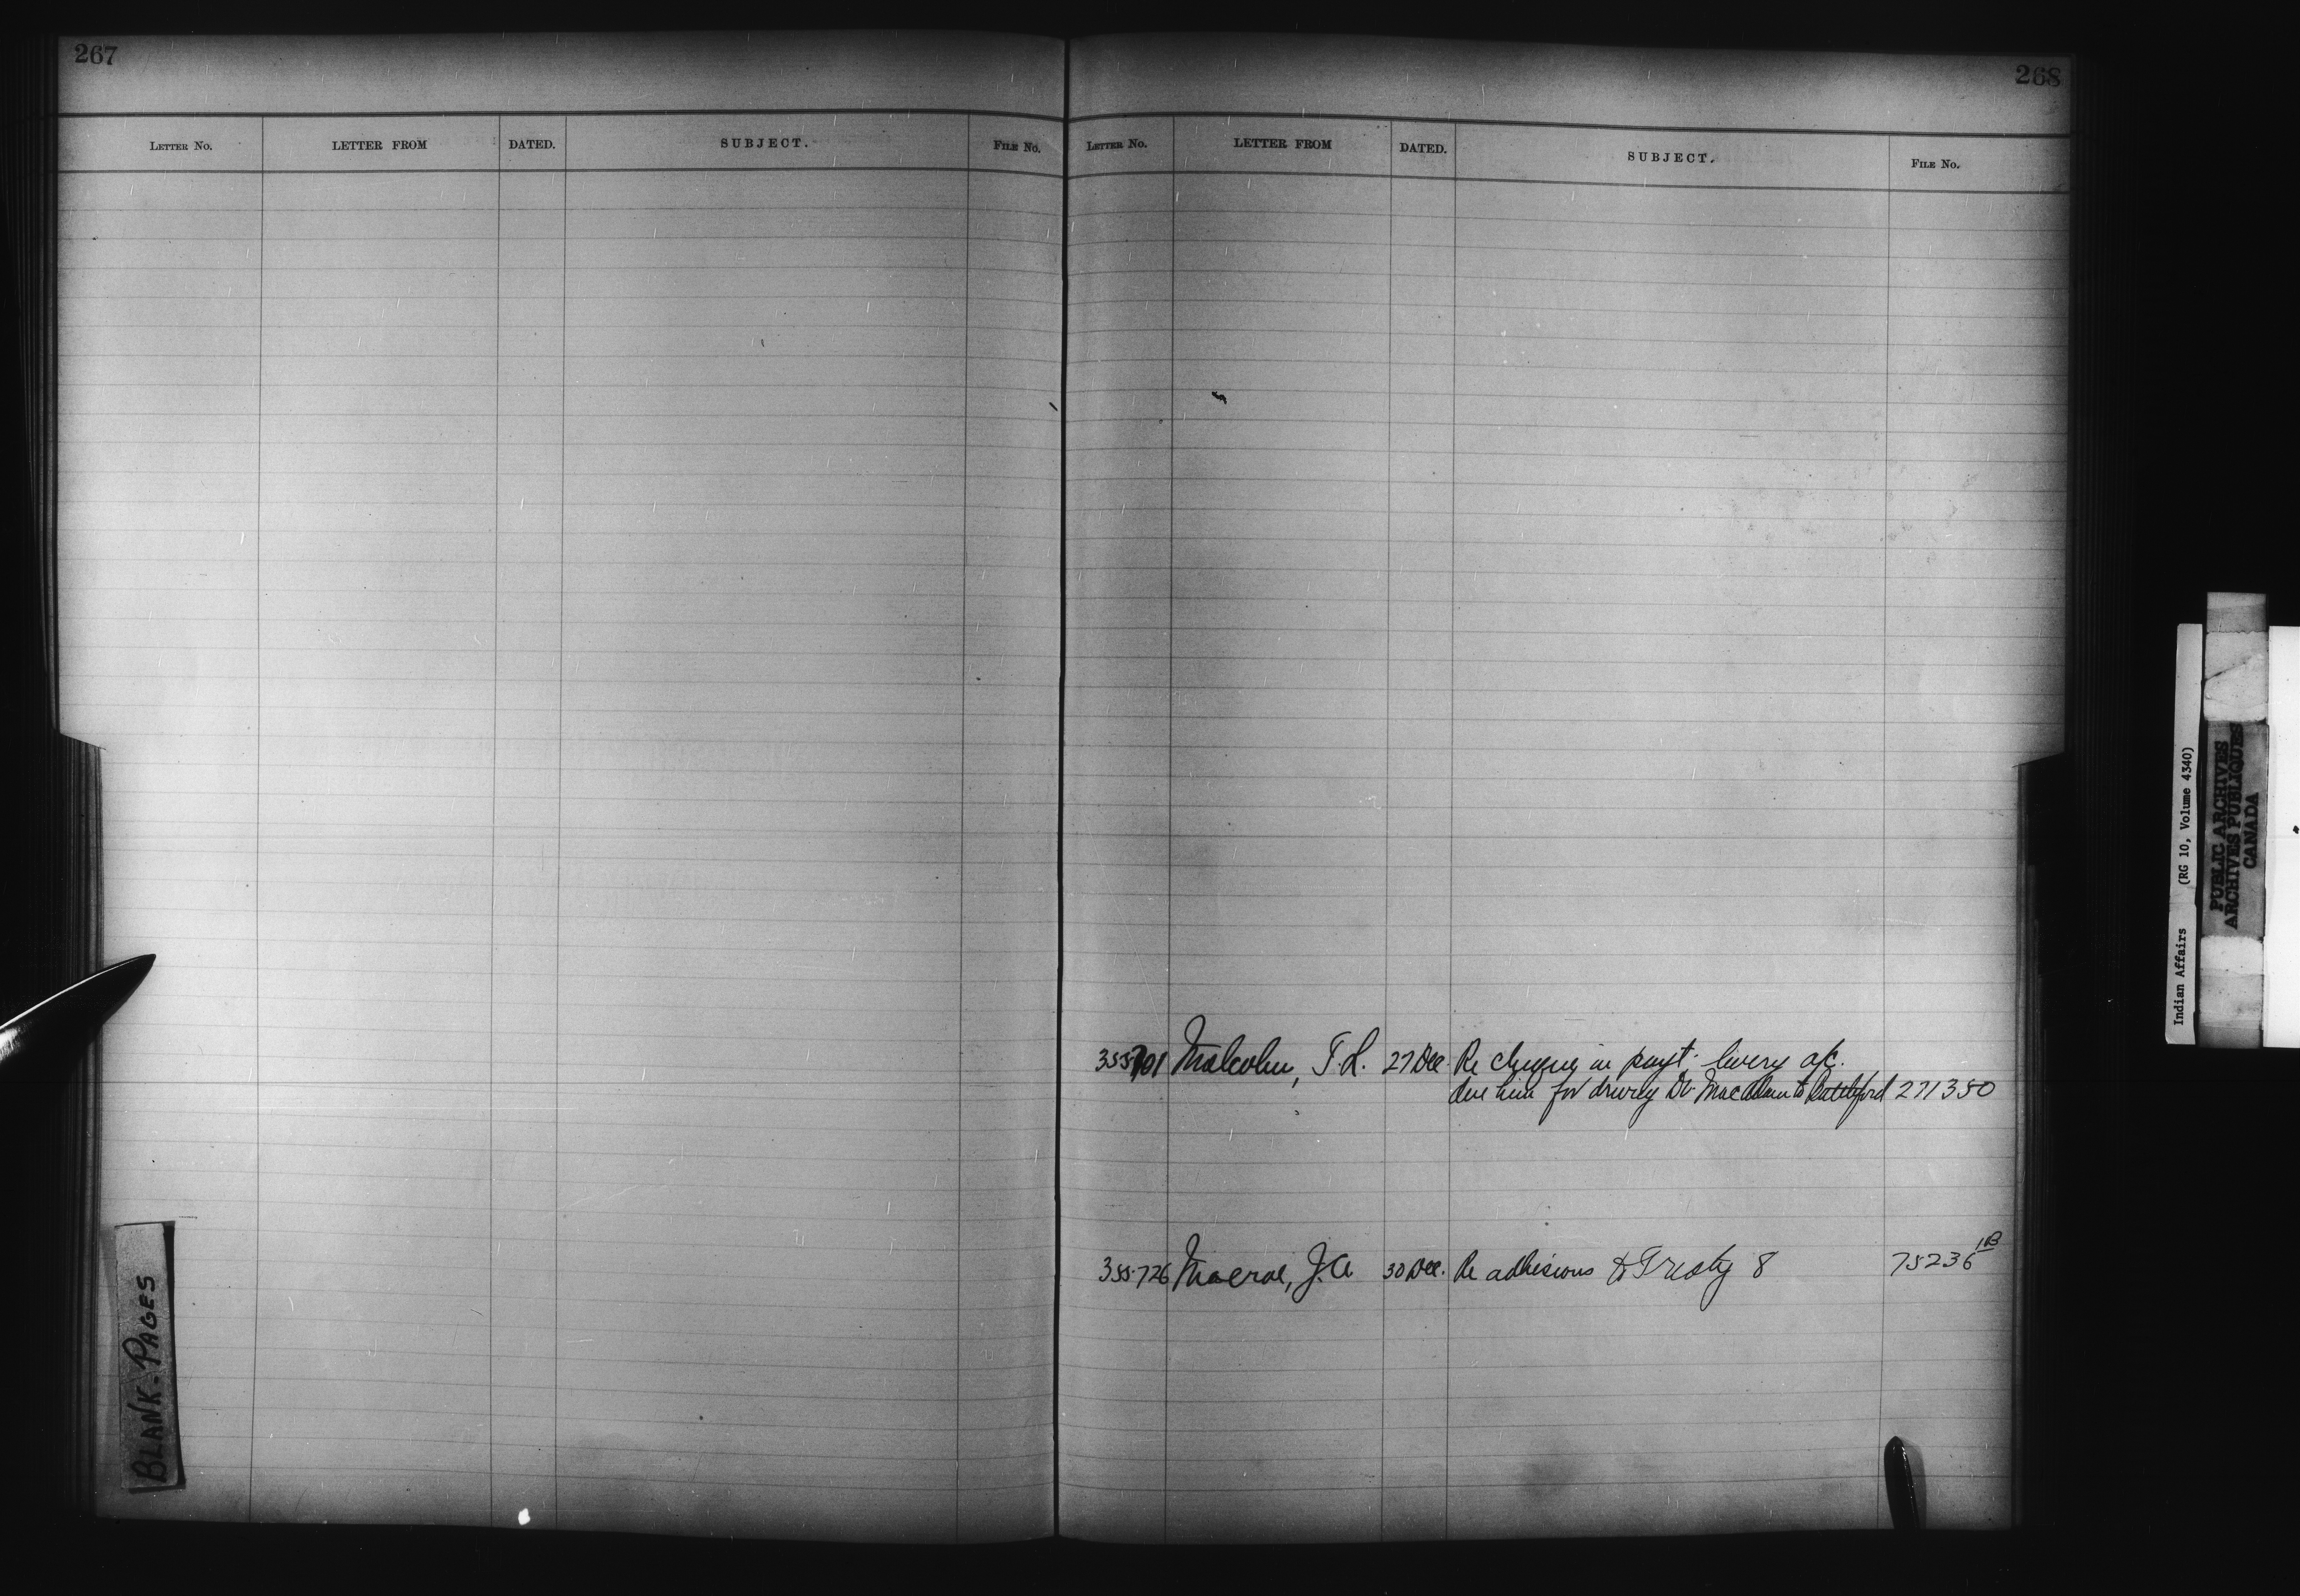 267
LETTER No. LETTER FROM DATED. SUBJECT. FILE No.
BLANK-PAGES
268
LETTER No. LETTER FROM DATED. SUBJECT. FILE No.
355701 Malcolm, T.L. 27 Dec. Re cheque in payt. livery a/c.
due him for driving Dr MacAdam to Battleford 271380
355726 Macrae, J.A 30 Dec. Re adhesions to Treaty 8 75236 1B
Indian Affairs (RG 10, Volume 4340)
PUBLIC ARCHIVES
ARCHIVES PUBLIQUES
CANADA